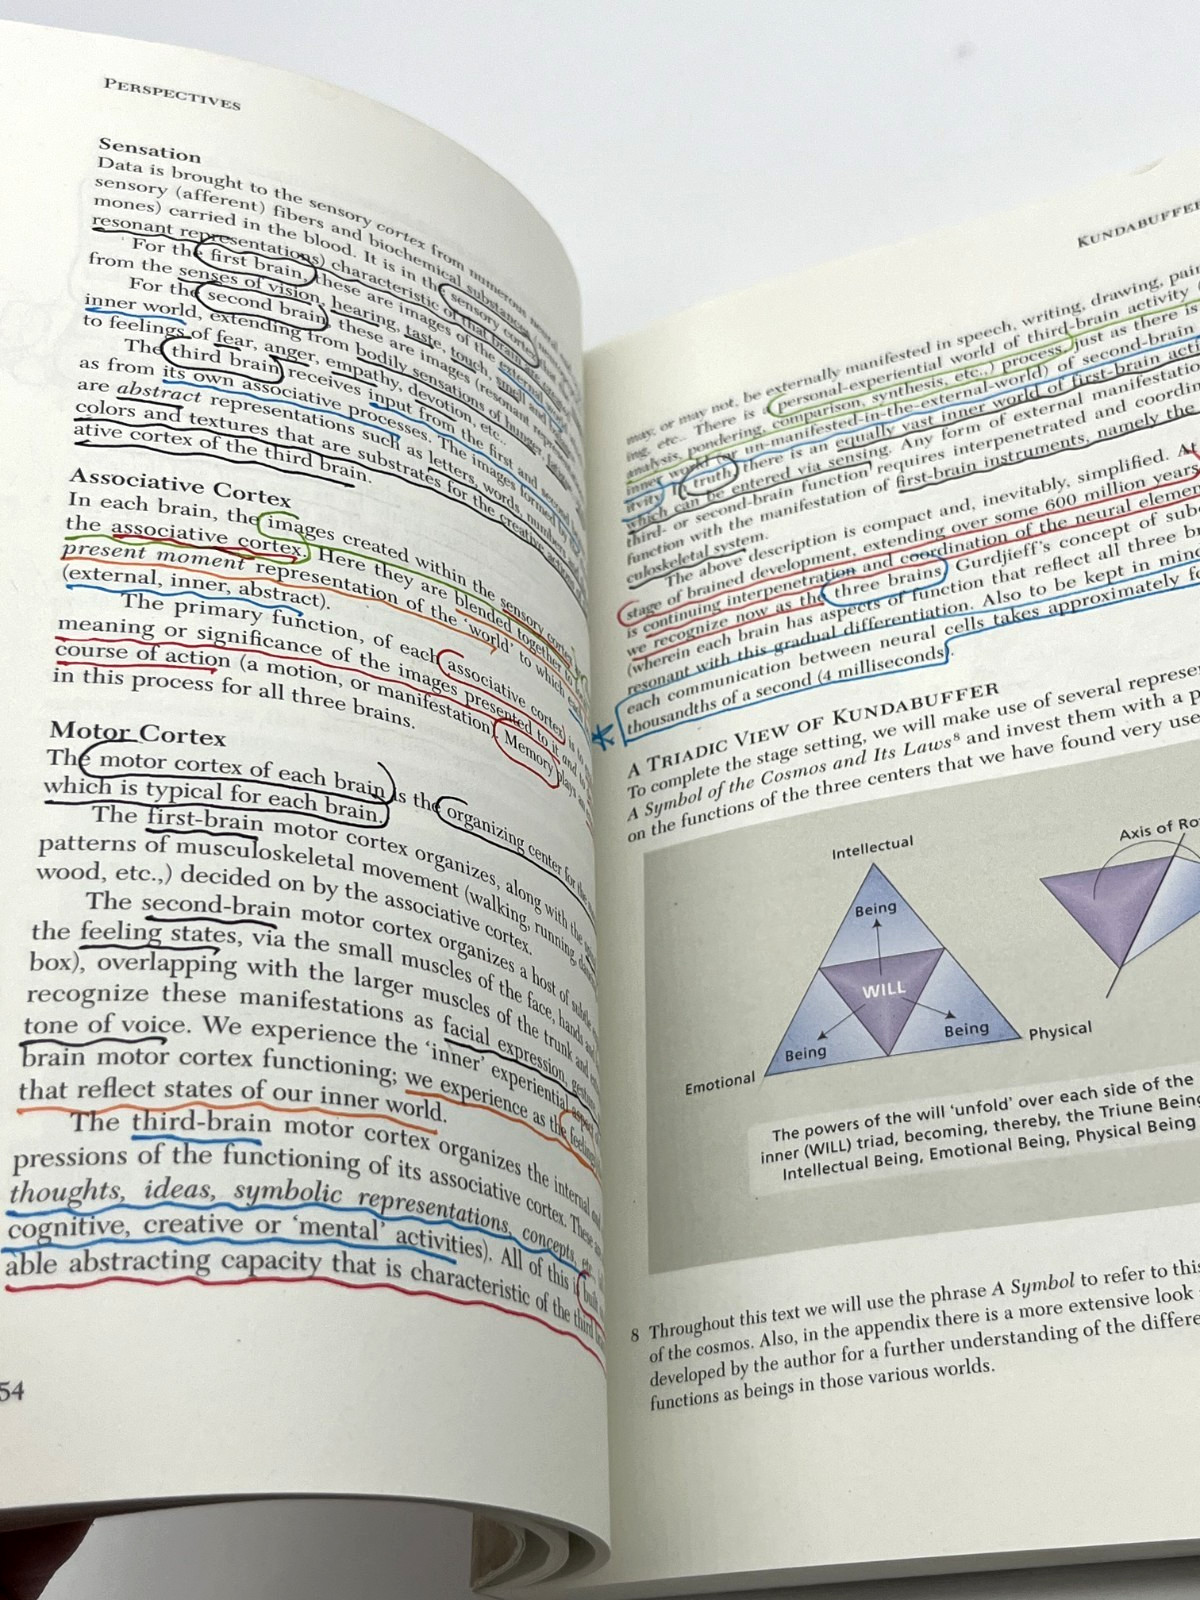 PERSPECTIVES
Sensation
Data is brought to the sensory cortex from numerous
sensory (afferent) fibers and biochemical substances
mones) carried in the blood. It is in the sensory cortex
resonant representations) characteristic of that brain
For the first brain, these are images of the external
from the senses of vision, hearing, taste, touch, smell and
For the second brain, these are images (resonant
inner world, extending from bodily sensations of hunger,
to feelings of fear, anger, empathy, devotion, etc..
The third brain receives input from the first and second
as from its own associative processes. The images formed
are abstract representations such as letters, words, numbers
colors and textures that are substrates for the creative
ative cortex of the third brain.
Associative Cortex
In each brain, the images created within the sensory cortex
the associative cortex. Here they are blended together to
present moment representation of the 'world' to which
(external, inner, abstract).
The primary function, of each associative cortex, is to
meaning or significance of the images presented to it and to
course of action (a motion, or manifestation). Memory plays an
in this process for all three brains.
Motor Cortex
The motor cortex of each brain is the organizing center for the
which is typical for each brain.
The first-brain motor cortex organizes, along with the
patterns of musculoskeletal movement (walking, running,
wood, etc.,) decided on by the associative cortex.
The second-brain motor cortex organizes a host of
the feeling states, via the small muscles of the face, hands and
box), overlapping with the larger muscles of the trunk and
recognize these manifestations as facial expression,
tone of voice. We experience the 'inner' experiential
brain motor cortex functioning; we experience as the feelings
that reflect states of our inner world.
The third-brain motor cortex organizes the internal
pressions of the functioning of its associative cortex. These
thoughts, ideas, symbolic representations, concepts, etc.
cognitive, creative or 'mental' activities). All of this is built
able abstracting capacity that is characteristic of the third
54
KUNDABUFFER
may, or may not, be externally manifested in speech, writing, drawing,
ing, etc.. There is a personal-experiential world of third-brain activity
analysis, pondering, comparison, synthesis, etc.,) process, just as there is
inner world (or un-manifested-in-the-external-world) of second-brain
ivity. In truth, there is an equally vast inner world of first-brain
which can be entered via sensing. Any form of external
third- or second-brain function requires interpenetrated and
function with the manifestation of first-brain instruments, namely the
culoskeletal system.
The above description is compact and, inevitably, simplified.
stage of brained development, extending over some 600 million years
is continuing interpenetration and coordination of the neural
we recognize now as the three brains. Gurdjieff's concept of
(wherein each brain has aspects of function that reflect all three
resonant with this gradual differentiation. Also to be kept in
each communication between neural cells takes approximately
thousandths of a second (4 milliseconds).
A TRIADIC VIEW OF KUNDABUFFER
To complete the stage setting, we will make use of several
A Symbol of the Cosmos and Its Laws⁸ and invest them with a
on the functions of the three centers that we have found very
Intellectual
Axis of
Being
WILL
Being
Being
Physical
Emotional
The powers of the will 'unfold' over each side of the
inner (WILL) triad, becoming, thereby, the Triune Being
Intellectual Being, Emotional Being, Physical Being
8 Throughout this text we will use the phrase A Symbol to refer to this
of the cosmos. Also, in the appendix there is a more extensive look
developed by the author for a further understanding of the
functions as beings in those various worlds.